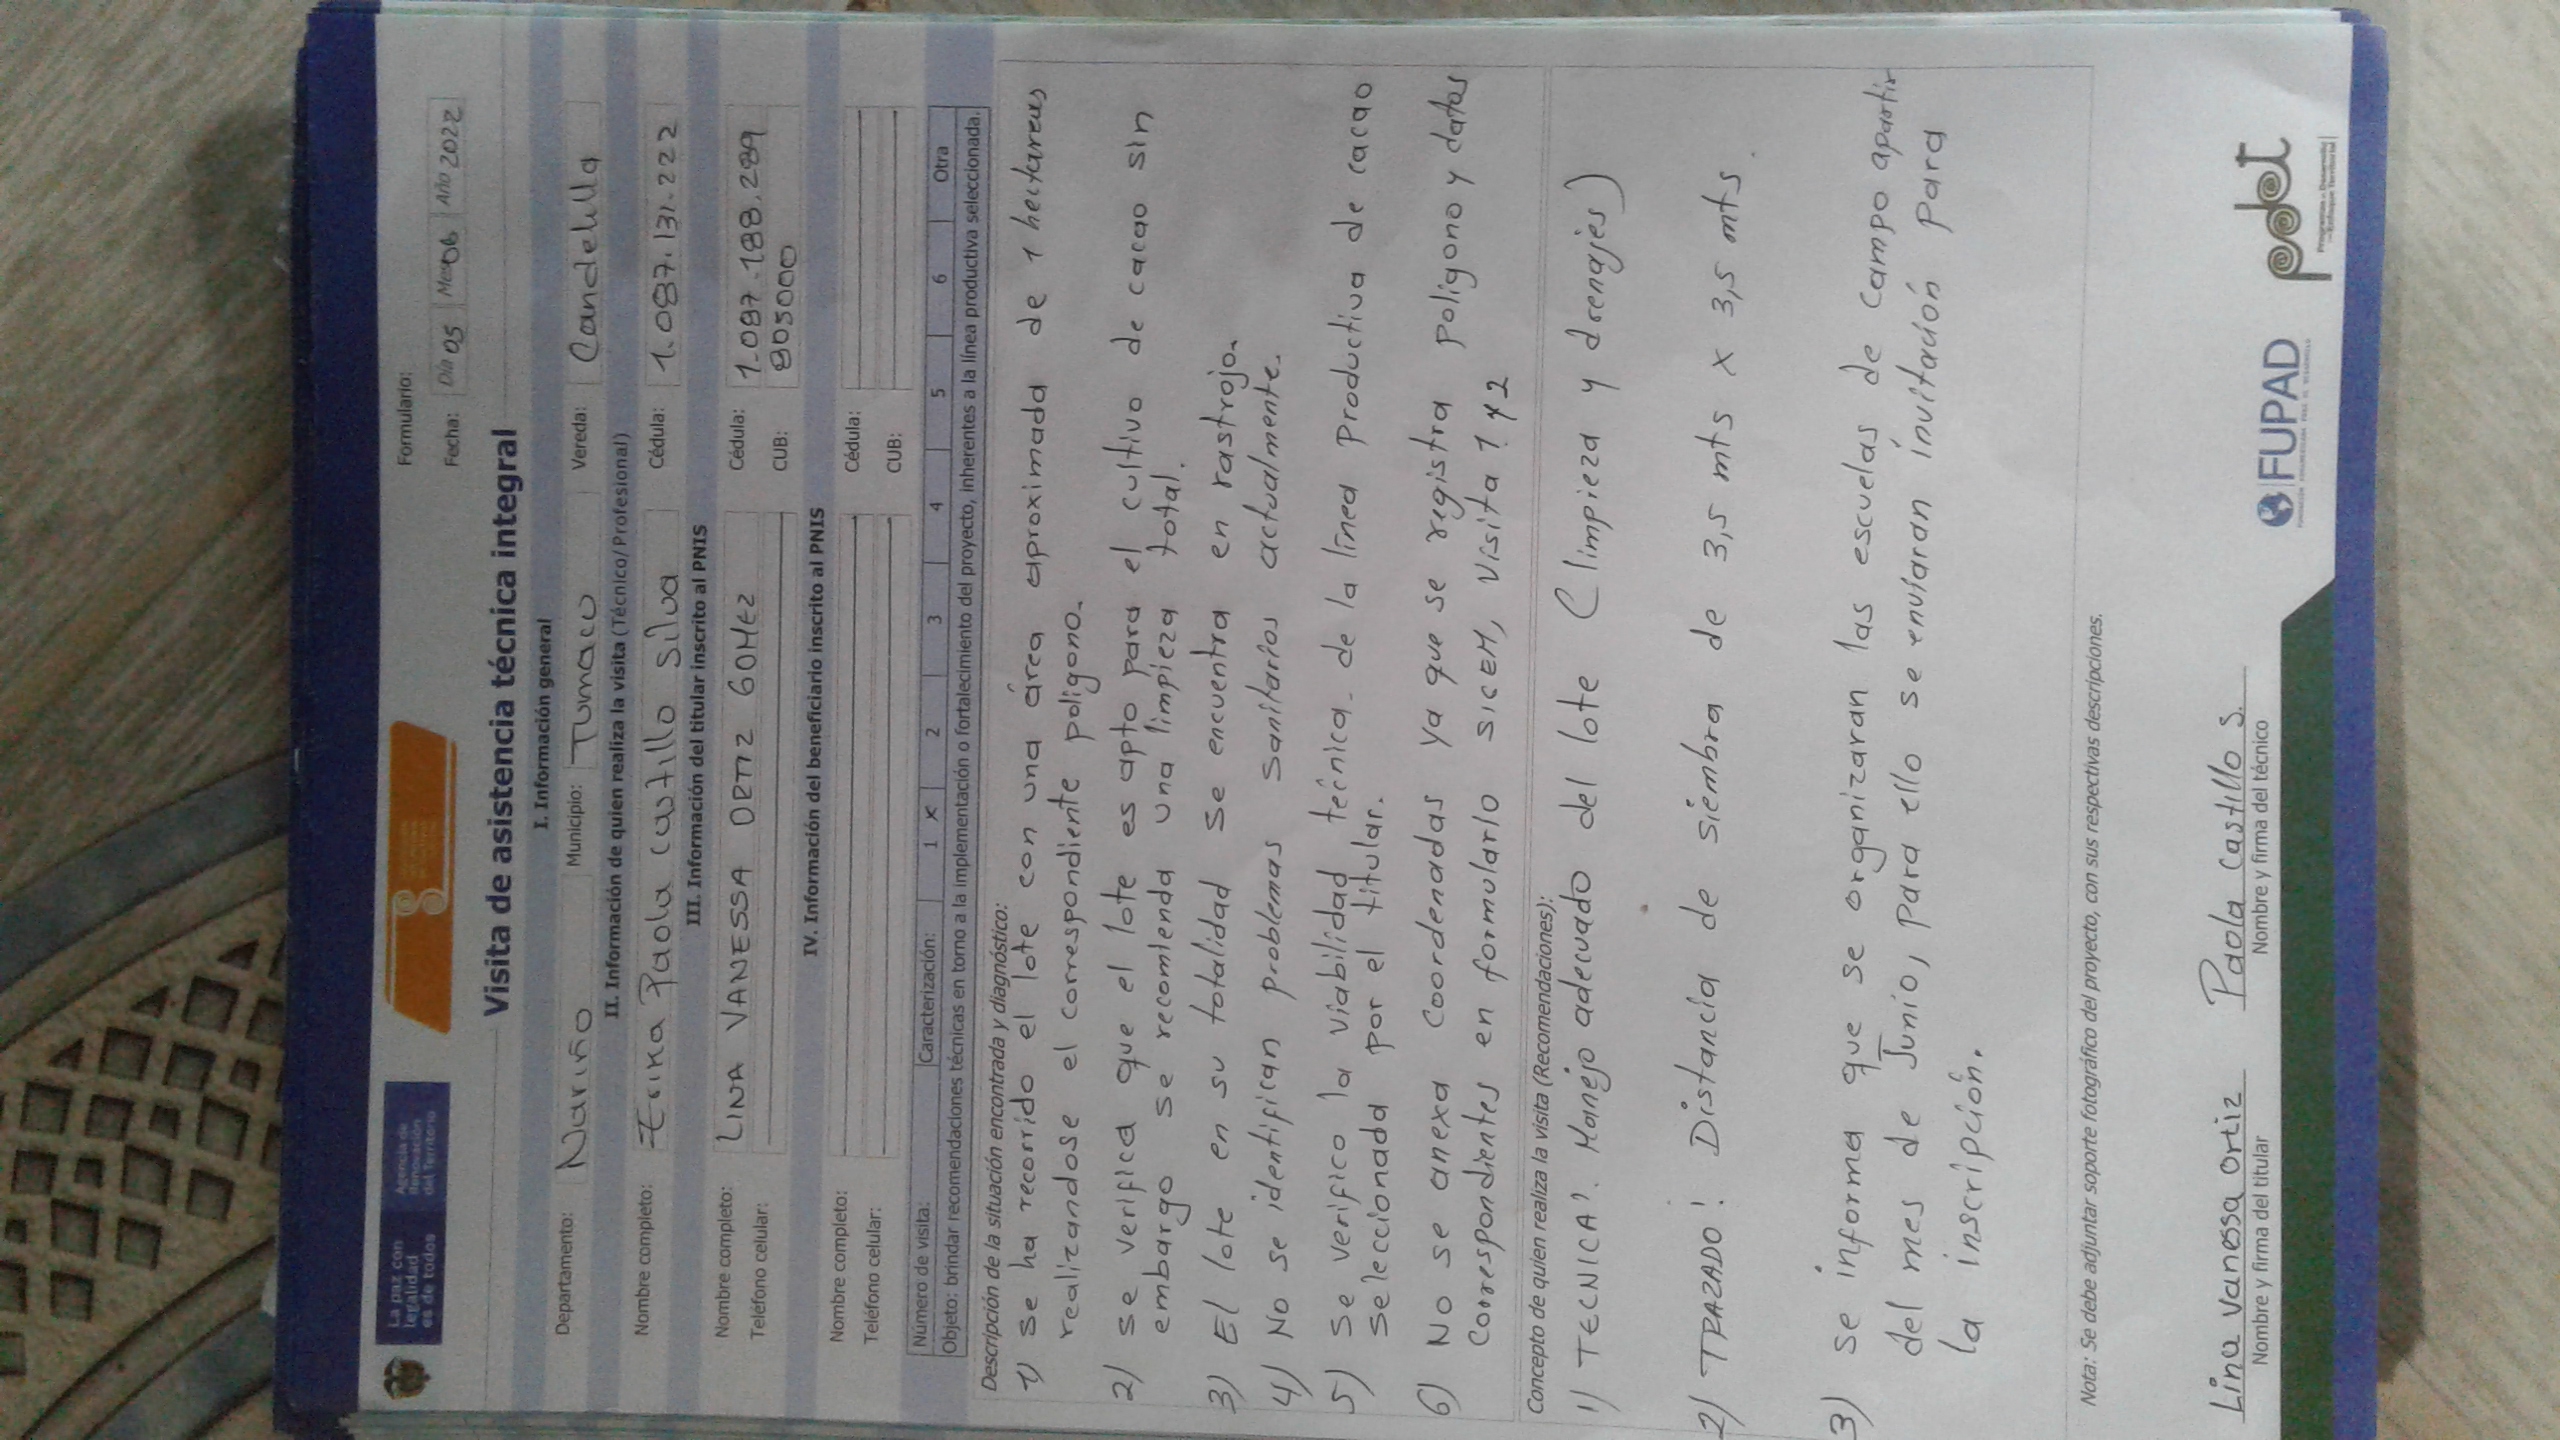 La paz con
legalidad
es de todos
Agencia de
Renovación
del Territorio
Formulario:
Fecha: Día 05 Mes 06 Año 2022
Visita de asistencia técnica integral
I. Información general
Departamento: Nariño Municipio: Tumaco Vereda: Candelilla
II. Información de quien realiza la visita (Técnico/Profesional)
Nombre completo: Erika Paola Castillo Silva Cédula: 1.087.131.223
III. Información del titular inscrito al PNIS
Nombre completo: LINA VANESSA ORTIZ GOMEZ Cédula: 1.087.188.289
Teléfono celular: CUB: 805000
IV. Información del beneficiario inscrito al PNIS
Nombre completo: Cédula:
Teléfono celular: CUB:
Número de visita: Caracterización: 1 X 2 3 4 5 6 Otra
Objeto: brindar recomendaciones técnicas en torno a la implementación o fortalecimiento del proyecto, inherentes a la línea productiva seleccionada.
Descripción de la situación encontrada y diagnóstico:
1) se ha recorrido el lote con una área aproximada de 1 hectareas
realizandose el correspondiente poligono.
2) se verifica que el lote es apto para el cultivo de cacao sin
embargo se recomienda una limpieza total.
3) El lote en su totalidad se encuentra en rastrojo.
4) No se identifican problemas sanitarios actualmente.
5) Se verifico la viabilidad técnica de la línea productiva de cacao
seleccionada por el titular.
6) No se anexa coordenadas ya que se registra poligono y datos
correspondientes en formulario SICEM, visita 1 y 2
Concepto de quien realiza la visita (Recomendaciones):
1) TECNICA: Manejo adecuado del lote (limpieza y drenajes)
2) TRAZADO: Distancia de siembra de 3,5 mts x 3,5 mts.
3) se informa que se organizaran las escuelas de campo apartir
del mes de Junio, para ello se enviaran invitación para
la inscripción.
Nota: Se debe adjuntar soporte fotográfico del proyecto, con sus respectivas descripciones.
Lina Vanessa Ortiz Paola Castillo S.
Nombre y firma del titular Nombre y firma del técnico
FUPAD
pdet
Programas de Desarrollo
con Enfoque Territorial